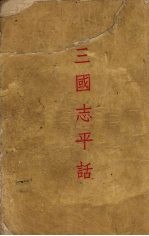 三國志平話